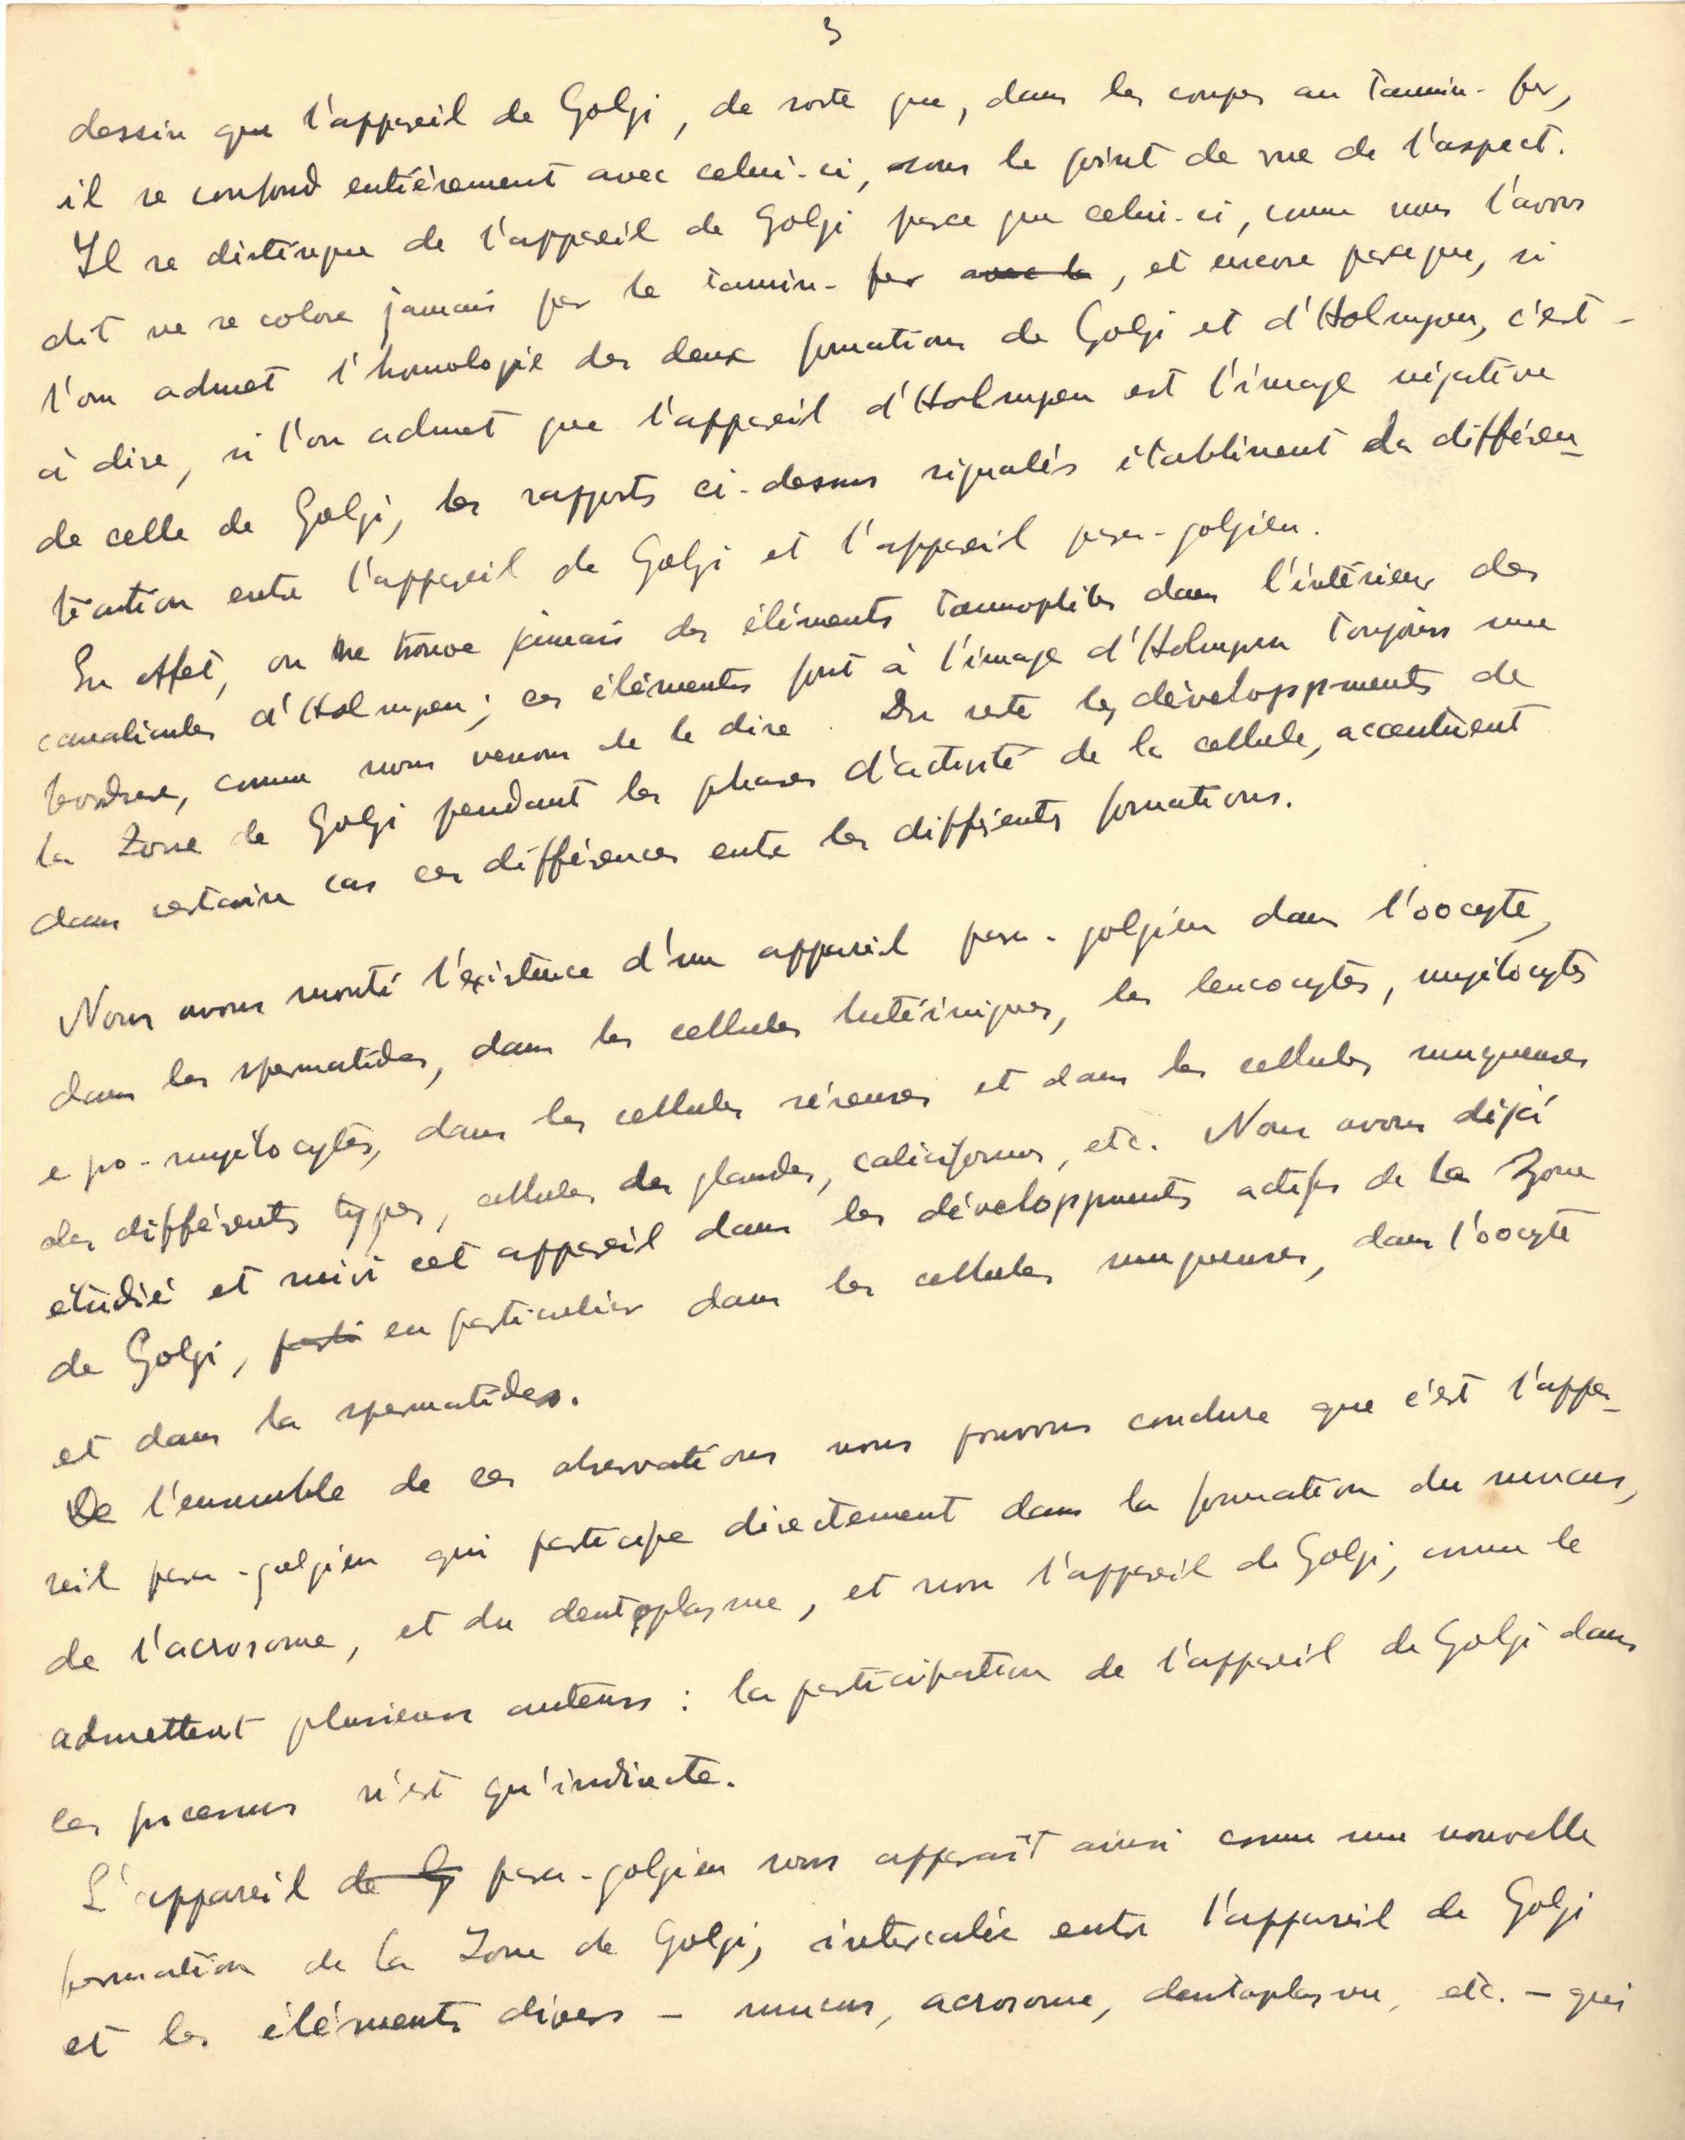 3
dessin que l'appareil de Golgi, de sorte que, dans les coupes au tannin-fer,
il se confond entièrement avec celui-ci, sous le point de vue de l'aspect.
Il se distingue de l'appareil de Golgi parce que celui-ci, comme nous l'avons
dit ne se colore jamais par le tannin-fer avec la, et encore parce que, si
l'on admet l'homologie des deux formations de Golgi et d'Holmgren, c'est-
à dire, si l'on admet que l'appareil d'Holmgren est l'image négative
de celle de Golgi, les rapports ci-dessus signalés établissent la différen-
tiation entre l'appareil de Golgi et l'appareil para-golgien.
En effet, on ne trouve jamais des éléments tannophiles dans l'intérieur des
canalicules d'Holmgren; ces éléments font à l'image d'Holmgren toujours une
bordure, comme nous venons de le dire. Du reste les développements de
la Zone de Golgi pendant les phases d'activité de la cellule, accentuent
dans certains cas ces différences entre les différents formations.
Nous avons montré l'existence d'un appareil para-golgien dans l'oocyte,
dans les spermatides, dans les cellules lutéiniques, les leucocytes, myélocytes
e pro-myélocytes, dans les cellules séreuses et dans les cellules muqueuses
des différents types, cellules des glandes, caliciformes, etc. Nous avons déjà
étudié et suivi cet appareil dans les développements actifs de la Zone
de Golgi, parti en particulier dans les cellules muqueuses, dans l'oocyte
et dans la spermatides.
De l'ensemble de ces observations nous pouvons conclure que c'est l'appa-
reil para-golgien qui participe directement dans la formation du mucus,
de l'acrosome, et du deutoplasme, et non l'appareil de Golgi, comme le
admettent plusieurs auteurs : la participation de l'appareil de Golgi dans
ces processus n'est qu'indirecte.
L'appareil de G para-golgien nous apparaît ainsi comme une nouvelle
formation de la Zone de Golgi, intercalée entre l'appareil de Golgi
et les éléments divers – mucus, acrosome, deutoplasme, etc. – qui